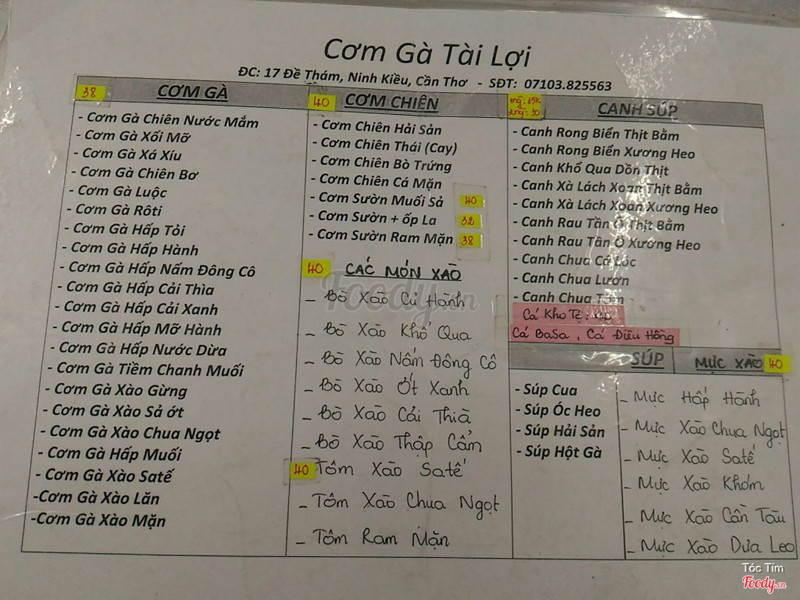 Cơm Gà Tài Lợi
ĐC: 17 Đề Thám, Ninh Kiều, Cần Thơ - SĐT: 07103.825563
38 CƠM GÀ
- Cơm Gà Chiên Nước Mắm
- Cơm Gà Xối Mỡ
- Cơm Gà Xá Xíu
- Cơm Gà Chiên Bơ
- Cơm Gà Luộc
- Cơm Gà Rôti
- Cơm Gà Hấp Tỏi
- Cơm Gà Hấp Hành
- Cơm Gà Hấp Nấm Đông Cô
- Cơm Gà Hấp Cải Thìa
- Cơm Gà Hấp Cải Xanh
- Cơm Gà Hấp Mỡ Hành
- Cơm Gà Hấp Nước Dừa
- Cơm Gà Tiềm Chanh Muối
- Cơm Gà Xào Gừng
- Cơm Gà Xào Sả ớt
- Cơm Gà Xào Chua Ngọt
- Cơm Gà Hấp Muối
- Cơm Gà Xào Satế
-Cơm Gà Xào Lăn
-Cơm Gà Xào Mặn
40 CƠM CHIÊN
- Cơm Chiên Hải Sản
- Cơm Chiên Thái (Cay)
- Cơm Chiên Bò Trứng
- Cơm Chiên Cá Mặn
- Cơm Sườn Muối Sả 40
- Cơm Sườn + ốp La 32
- Cơm Sườn Ram Mặn 38
40 CÁC MÓN XÀO
- Bò Xào Củ Hành
- Bò Xào Khổ Qua
- Bò Xào Nấm Đông Cô
- Bò Xào Ớt Xanh
- Bò Xào Cải Thià
- Bò Xào Thập Cẩm
40 Tôm Xào Satế
- Tôm Xào Chua Ngọt
- Tôm Ram Mặn
CANH SÚP
- Canh Rong Biển Thịt Bằm
- Canh Rong Biển Xương Heo
- Canh Khổ Qua Dồn Thịt
- Canh Xà Lách Xoan Thịt Bằm
- Canh Xà Lách Xoan Xương Heo
- Canh Rau Tần Ô Thịt Bằm
- Canh Rau Tần Ô Xương Heo
- Canh Chua Cá Lóc
- Canh Chua Lươn
- Canh Chua Tôm
Cá Kho Tộ:
Cá BaSa, Cá Điêu Hồng
SÚP
- Súp Cua
- Súp Óc Heo
- Súp Hải Sản
- Súp Hột Gà
MỰC XÀO 40
- Mực Hấp Hành
- Mực Xào Chua Ngọt
- Mực Xào Satế
- Mực Xào Khơm
- Mực Xào Cần Tàu
- Mực Xào Dưa Leo
Foody.vn
Tóc Tim
Foody.vn